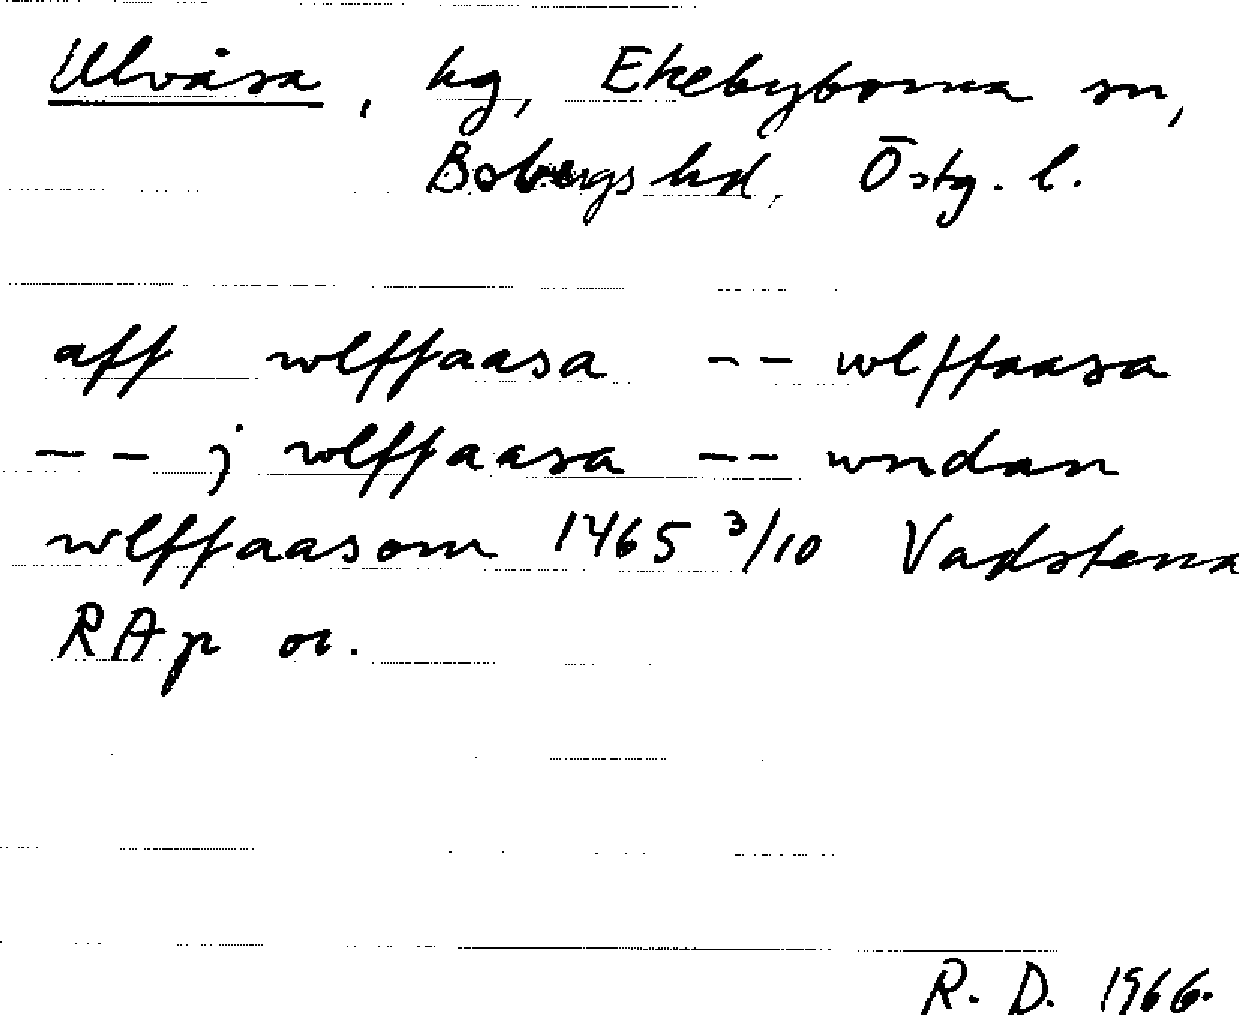 Ulvåsa, hg, Ekebyborna sn,
Bobergs hd, Östg. l.
aff wlffaasa -- wlffaasa
-- j wlffaasa -- wndan
wlffaasom 1465 3/10 Vadstena
RAp or.
R. D. 1966.